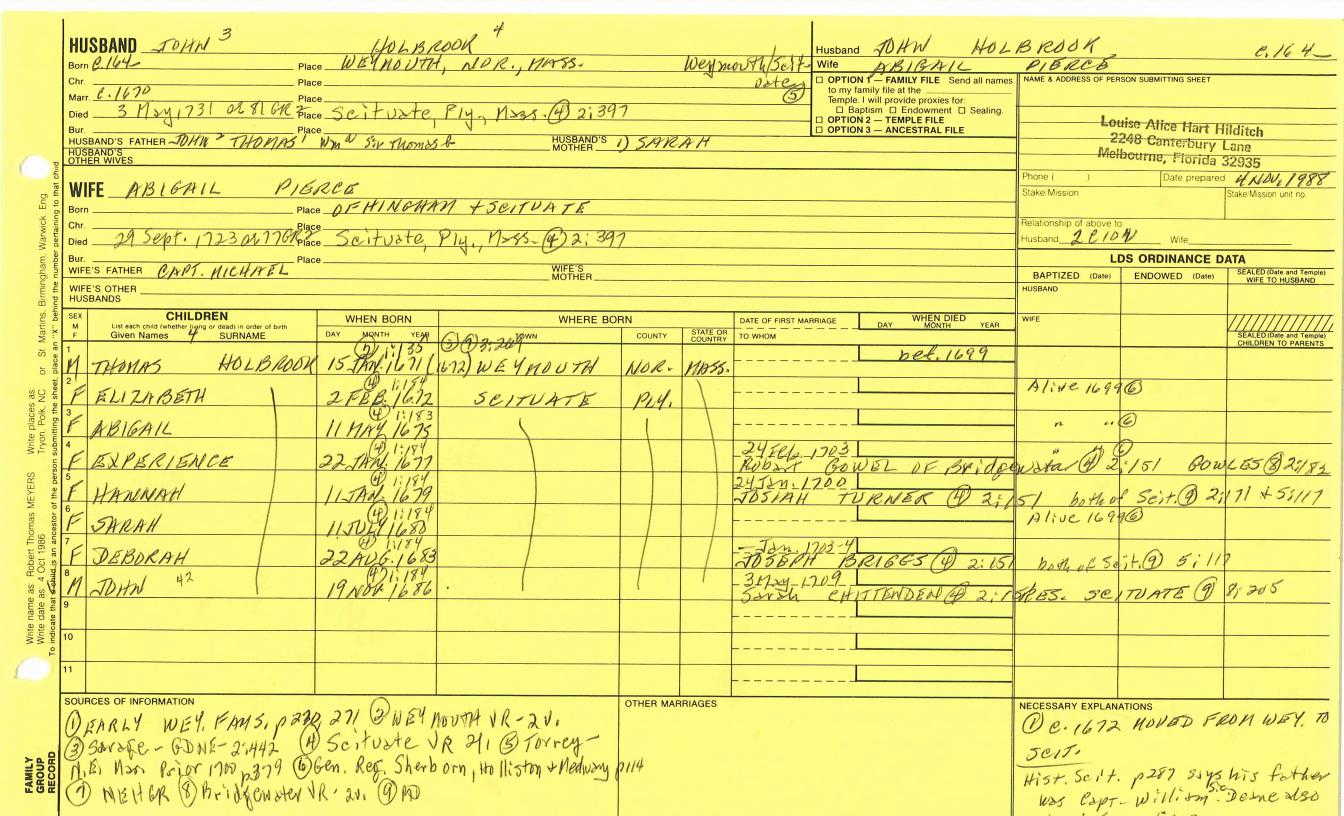 HUSBAND JOHN 3 HOLBROOK 4
Born c.164- Place WEYMOUTH, NOR., MASS. Weymouth/Scit-
Chr. Place Dates
Marr. c.1670 Place (5)
Died 3 May, 731 or 81 GR2 Place Scituate, Ply., Mass. (4) 2:397
Bur. Place
HUSBAND'S FATHER JOHN 2 THOMAS 1 Wm Sir Thomas HUSBAND'S MOTHER 1) SARAH
HUSBAND'S OTHER WIVES
WIFE ABIGAIL PIERCE
Born Place OF HINGHAM + SCITUATE
Chr. Place
Died 29 Sept. 1723 or 77 GR2 Place Scituate, Ply., Mass. (4) 2:397
Bur. Place
WIFE'S FATHER CAPT. MICHAEL WIFE'S MOTHER
WIFE'S OTHER HUSBANDS
Husband JOHN HOLBROOK c.164-
Wife ABIGAIL PIERCE
☐ OPTION 1 — FAMILY FILE Send all names
to my family file at the
Temple. I will provide proxies for:
☐ Baptism ☐ Endowment ☐ Sealing.
☐ OPTION 2 — TEMPLE FILE
☐ OPTION 3 — ANCESTRAL FILE
NAME & ADDRESS OF PERSON SUBMITTING SHEET
Louise Alice Hart Hilditch
2248 Canterbury Lane
Melbourne, Florida 32935
Phone ( ) Date prepared 4 NOV, 1988
Stake Mission Stake Mission unit no.
Relationship of above to
Husband Wife
LDS ORDINANCE DATA
BAPTIZED (Date) ENDOWED (Date) SEALED (Date and Temple) WIFE TO HUSBAND
HUSBAND
WIFE
SEALED (Date and Temple) CHILDREN TO PARENTS
SEX M F CHILDREN WHEN BORN WHERE BORN DATE OF FIRST MARRIAGE WHEN DIED
List each child (whether living or dead) in order of birth
Given Names 4 SURNAME DAY MONTH YEAR TOWN COUNTY STATE OR COUNTRY TO WHOM DAY MONTH YEAR
1 M THOMAS HOLBROOK 15 JAN. 1671 (1672) WEYMOUTH NOR. MASS. bet. 1699
2 F ELIZABETH (4) 1:184 2 FEB. 1672 SCITUATE PLY. Alive 1699 (6)
3 F ABIGAIL (4) 1:183 11 MAY 1675 " " (6)
4 F EXPERIENCE (4) 1:184 22 JAN. 1677 24 Feb. 1703 Robert GOWEL OF Bridgewater (4) 2:151 GOWLES (8) 2:182
5 F HANNAH (4) 1:184 11 JAN. 1679 24 Jan. 1700 JOSIAH TURNER (4) 2:151 both of Scit. (9) 2:171 + 5:117
6 F SARAH (4) 1:184 11 JULY 1680 Alive 1699 (6)
7 F DEBORAH (4) 1:184 22 AUG. 1683 - Jan. 1703-4 JOSEPH BRIGGS (4) 2:151 both of Scit. (9) 5:117
8 M JOHN 42 (4) 1:184 19 NOV. 1686 3 May 1709 Sarah CHITTENDEN (4) RES. SCITUATE (9) 8:205
9
10
11
SOURCES OF INFORMATION
(1) EARLY WEY. FAMS. p 270, 271 (2) WEYMOUTH VR - 2v.
(3) Savage - GDNE - 2:442 (4) Scituate VR 2v. (5) Torrey -
N.E. Marr. Prior 1700 p379 (6) Gen. Reg. Sherborn, Holliston + Medway p114
(7) NEHGR (8) Bridgewater VR - 2v. (9) MD
OTHER MARRIAGES
NECESSARY EXPLANATIONS
(1) c. 1672 MOVED FROM WEY. TO
SCIT.
Hist. Scit. p287 says his father
was Capt. William Sic. Deane also
Write name as: Robert Thomas MEYERS Write places as: Tryon, Polk, NC or St Martins, Birmingham, Warwick, Eng
Write date as: 4 Oct 1986
To indicate that a child is an ancestor of the person submitting the sheet, place an "X" behind the number pertaining to that child
FAMILY GROUP RECORD